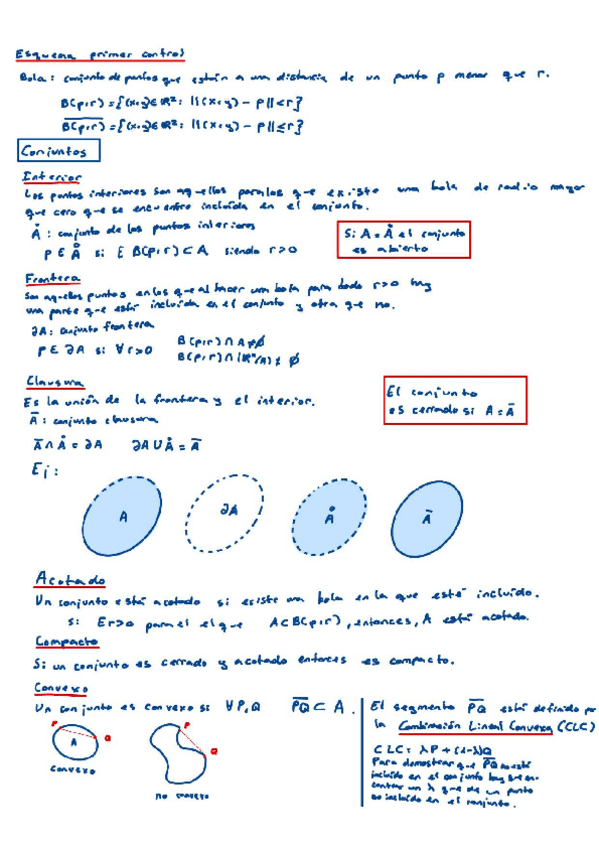 Esquema primer control
Bola: conjunto de puntos que están a una distancia de un punto p menor que r.
B(p,r) = {(x,y) ∈ ℝ²: ||(x,y) - p|| < r}
B̅(̅p̅,̅r̅)̅ = {(x,y) ∈ ℝ²: ||(x,y) - p|| ≤ r}
Conjuntos
Interior
Los puntos interiores son aquellos para los que existe una bola de radio mayor
que cero que se encuentre incluida en el conjunto.
Å: conjunto de los puntos interiores
p ∈ Å si E B(p,r) ⊂ A siendo r>0
Si A = Å el conjunto
es abierto
Frontera
Son aquellos puntos en los que al hacer una bola para dado r>0 hay
una parte que está incluida en el conjunto y otra que no.
∂A: conjunto frontera
p ∈ ∂A si ∀r>0
B(p,r) ∩ A ≠ ∅
B(p,r) ∩ (ℝⁿ/A) ≠ ∅
Clausura
Es la unión de la frontera y el interior.
Ā: conjunto clausura
Ā ∩ Å = ∂A ∂A ∪ Å = Ā
El conjunto
es cerrado si A = Ā
Ej:
A
∂A
Å
Ā
Acotado
Un conjunto está acotado si existe una bola en la que esté incluido.
Si E r>0 para el que A ⊂ B(p,r), entonces, A está acotado.
Compacto
Si un conjunto es cerrado y acotado entonces es compacto.
Convexo
Un conjunto es convexo si ∀P,Q P̅Q̅ ⊂ A.
P
Q
A
convexo
P
Q
no convexo
El segmento P̅Q̅ está definido por
la Combinación Lineal Convexa (CLC)
CLC: λP + (1-λ)Q
Para demostrar que P̅Q̅ no está
incluido en el conjunto hay que en-
contrar un λ que de un punto
no incluido en el conjunto.